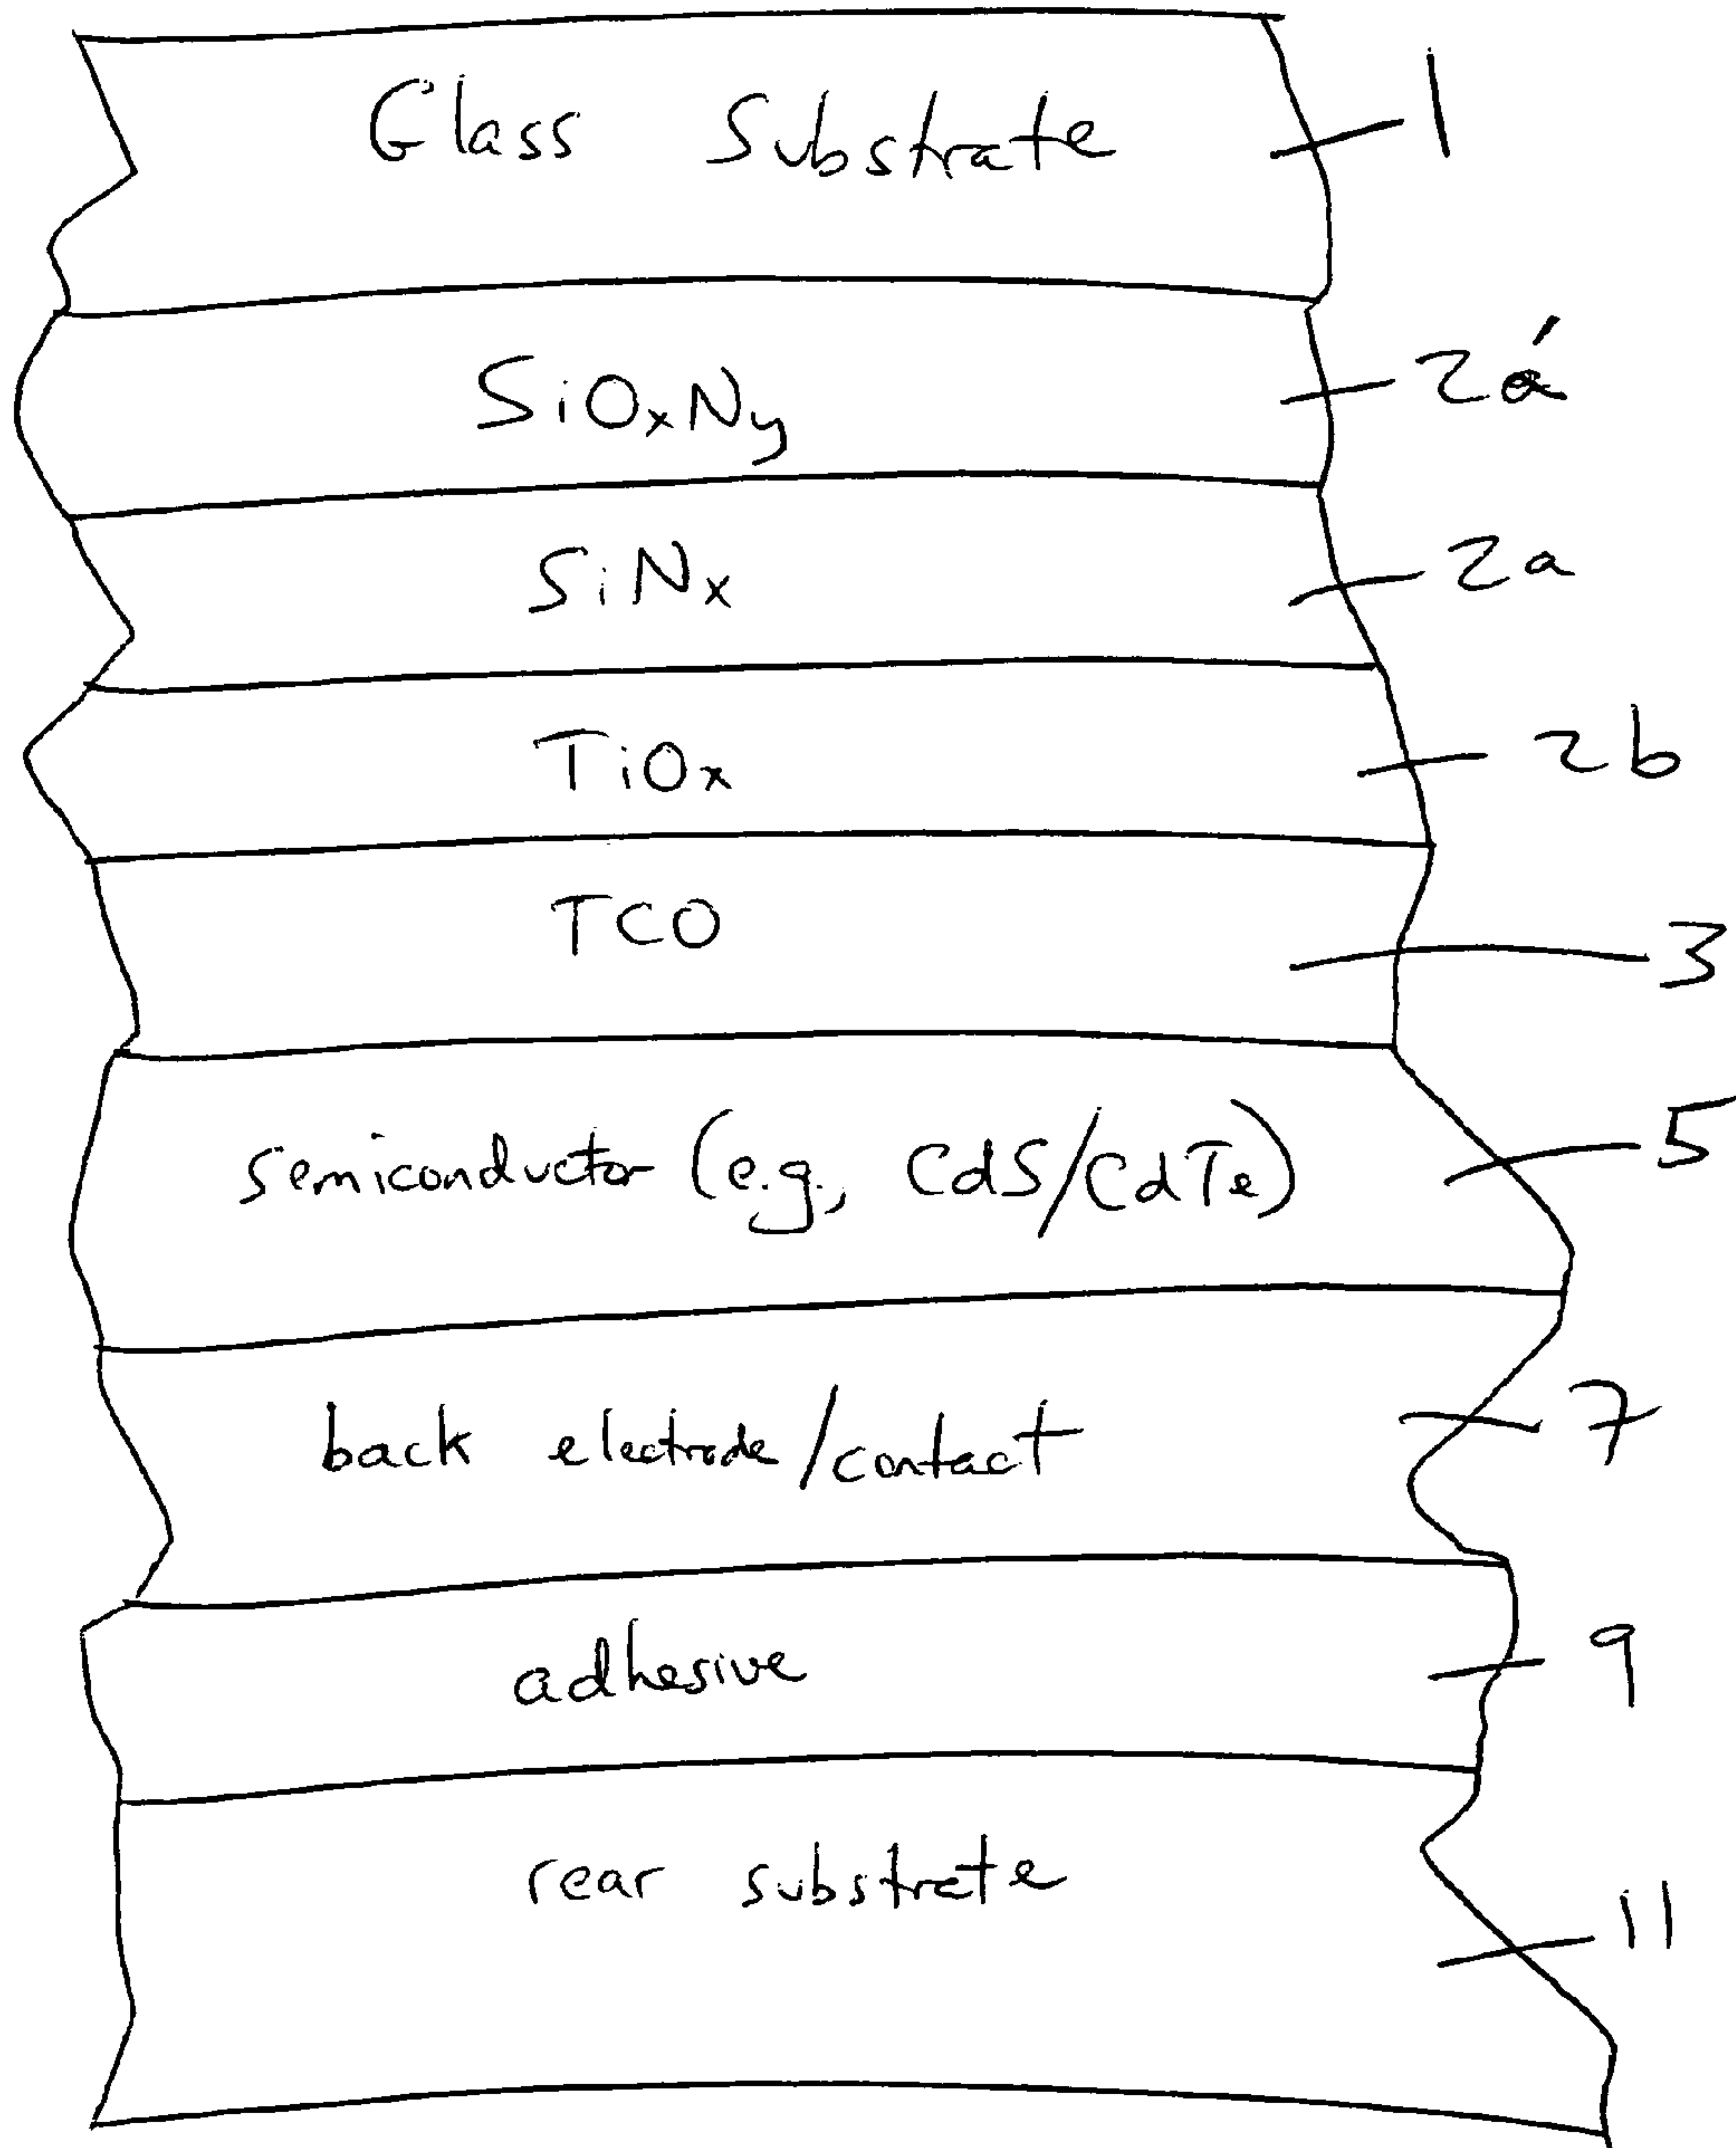 Glass Substrate 1
SiOxNy 2a'
SiNx 2a
TiOx 2b
TCO 3
semiconductor (e.g., CdS/CdTe) 5
back electrode/contact 7
adhesive 9
rear substrate 11